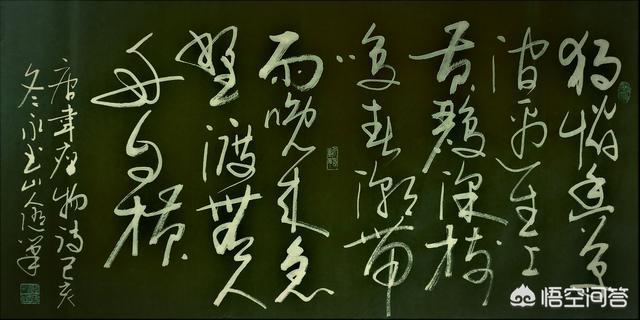 独怜幽草
涧边生上
有黄鹂深树
鸣春潮带
雨晚来急
野渡无人
舟自横
唐韦应物诗己亥
冬
悟空问答